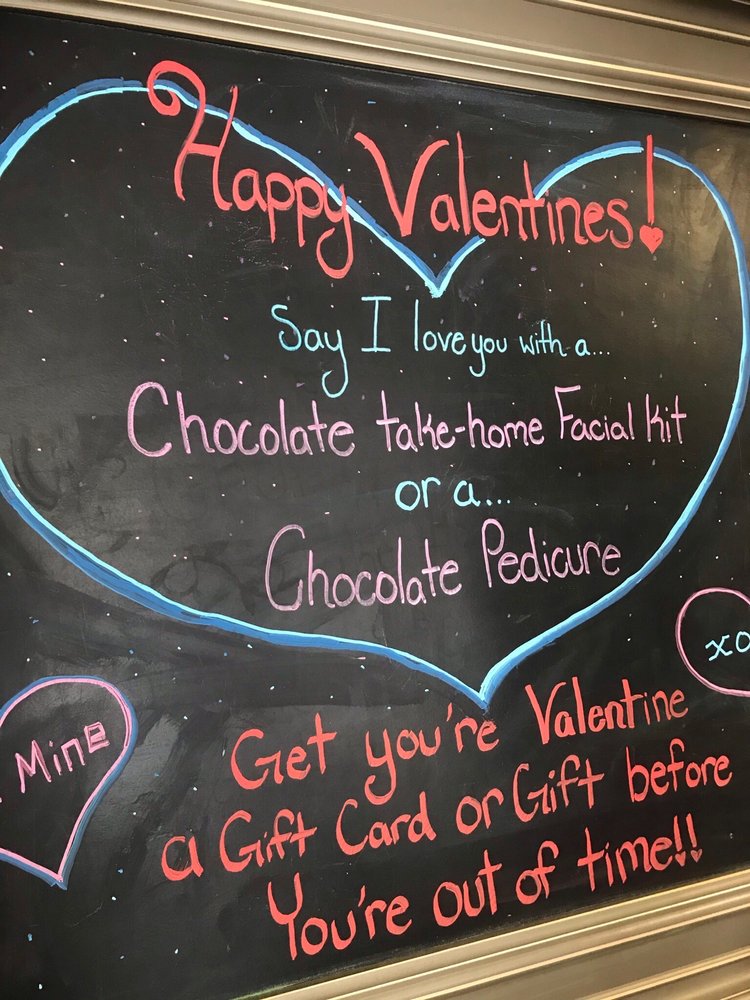 Happy Valentines!
Say I love you with a...
Chocolate take-home Facial Kit
or a...
Chocolate Pedicure
xo
Mine
Get you're Valentine
a Gift Card or Gift before
You're out of time!!